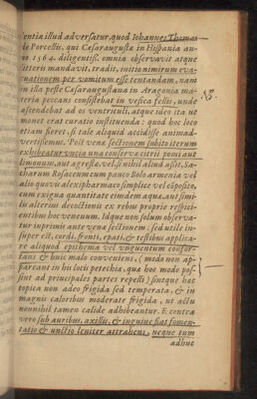 entia illud adversatur, quod Iohannes Thomas
de Porcellis, qui Cæsaraugustæ in Hispania an-
no 1564. diligentiss. omnia observavit atque
litteris mandavit, tradit, initio nimirum eva-
cuationem per vomitum esse tentandam, nam
in illa peste Cæsaraugustana in Aragonia ma-
teria peccans consistebat in vesica fellis, unde
ascendebat ad os ventriculi, atque ideo ita ut
monet erat curatio instituenda: quod hoc loco
etiam fieret, si tale aliquid accidisse animad-
vertissemus. Post venæ sectionem subito iterum
exhibeatur uncia una conservæ citrii pomi aut
limonum, aut agrestæ, vel si nihil aliud adsit, Sa-
charum Rosaceum cum pauco Bolo armenia vel
alio quovis alexipharmaco simplice vel cõposito,
cum exigua quantitate eiusdem aquæ, aut simi-
lis alterius decoctionis ex rebus proprie resisti-
entibus hoc veneno. Idque non solum observa-
tur inprimis ante venæ sectionem: sed utile in-
super est, cordi, fronti, epati, & testibus applica-
re aliquod epithema vel unguentum confor-
tans & huic malo conveniens, (modo non ap-
pareant in his locis petechia, qua hoc modo pos-
sint ad principales partes repelli) sintque hæc
topica non adeo frigida sed temperata, & in
magnis caloribus moderate frigida, ut actu
nihil tamen calide adhibeantur. E contra
vero sub auribus, axillis, & inguine fiat fomen-
tatio & unctio leniter attrahens, neque tum
adhuc